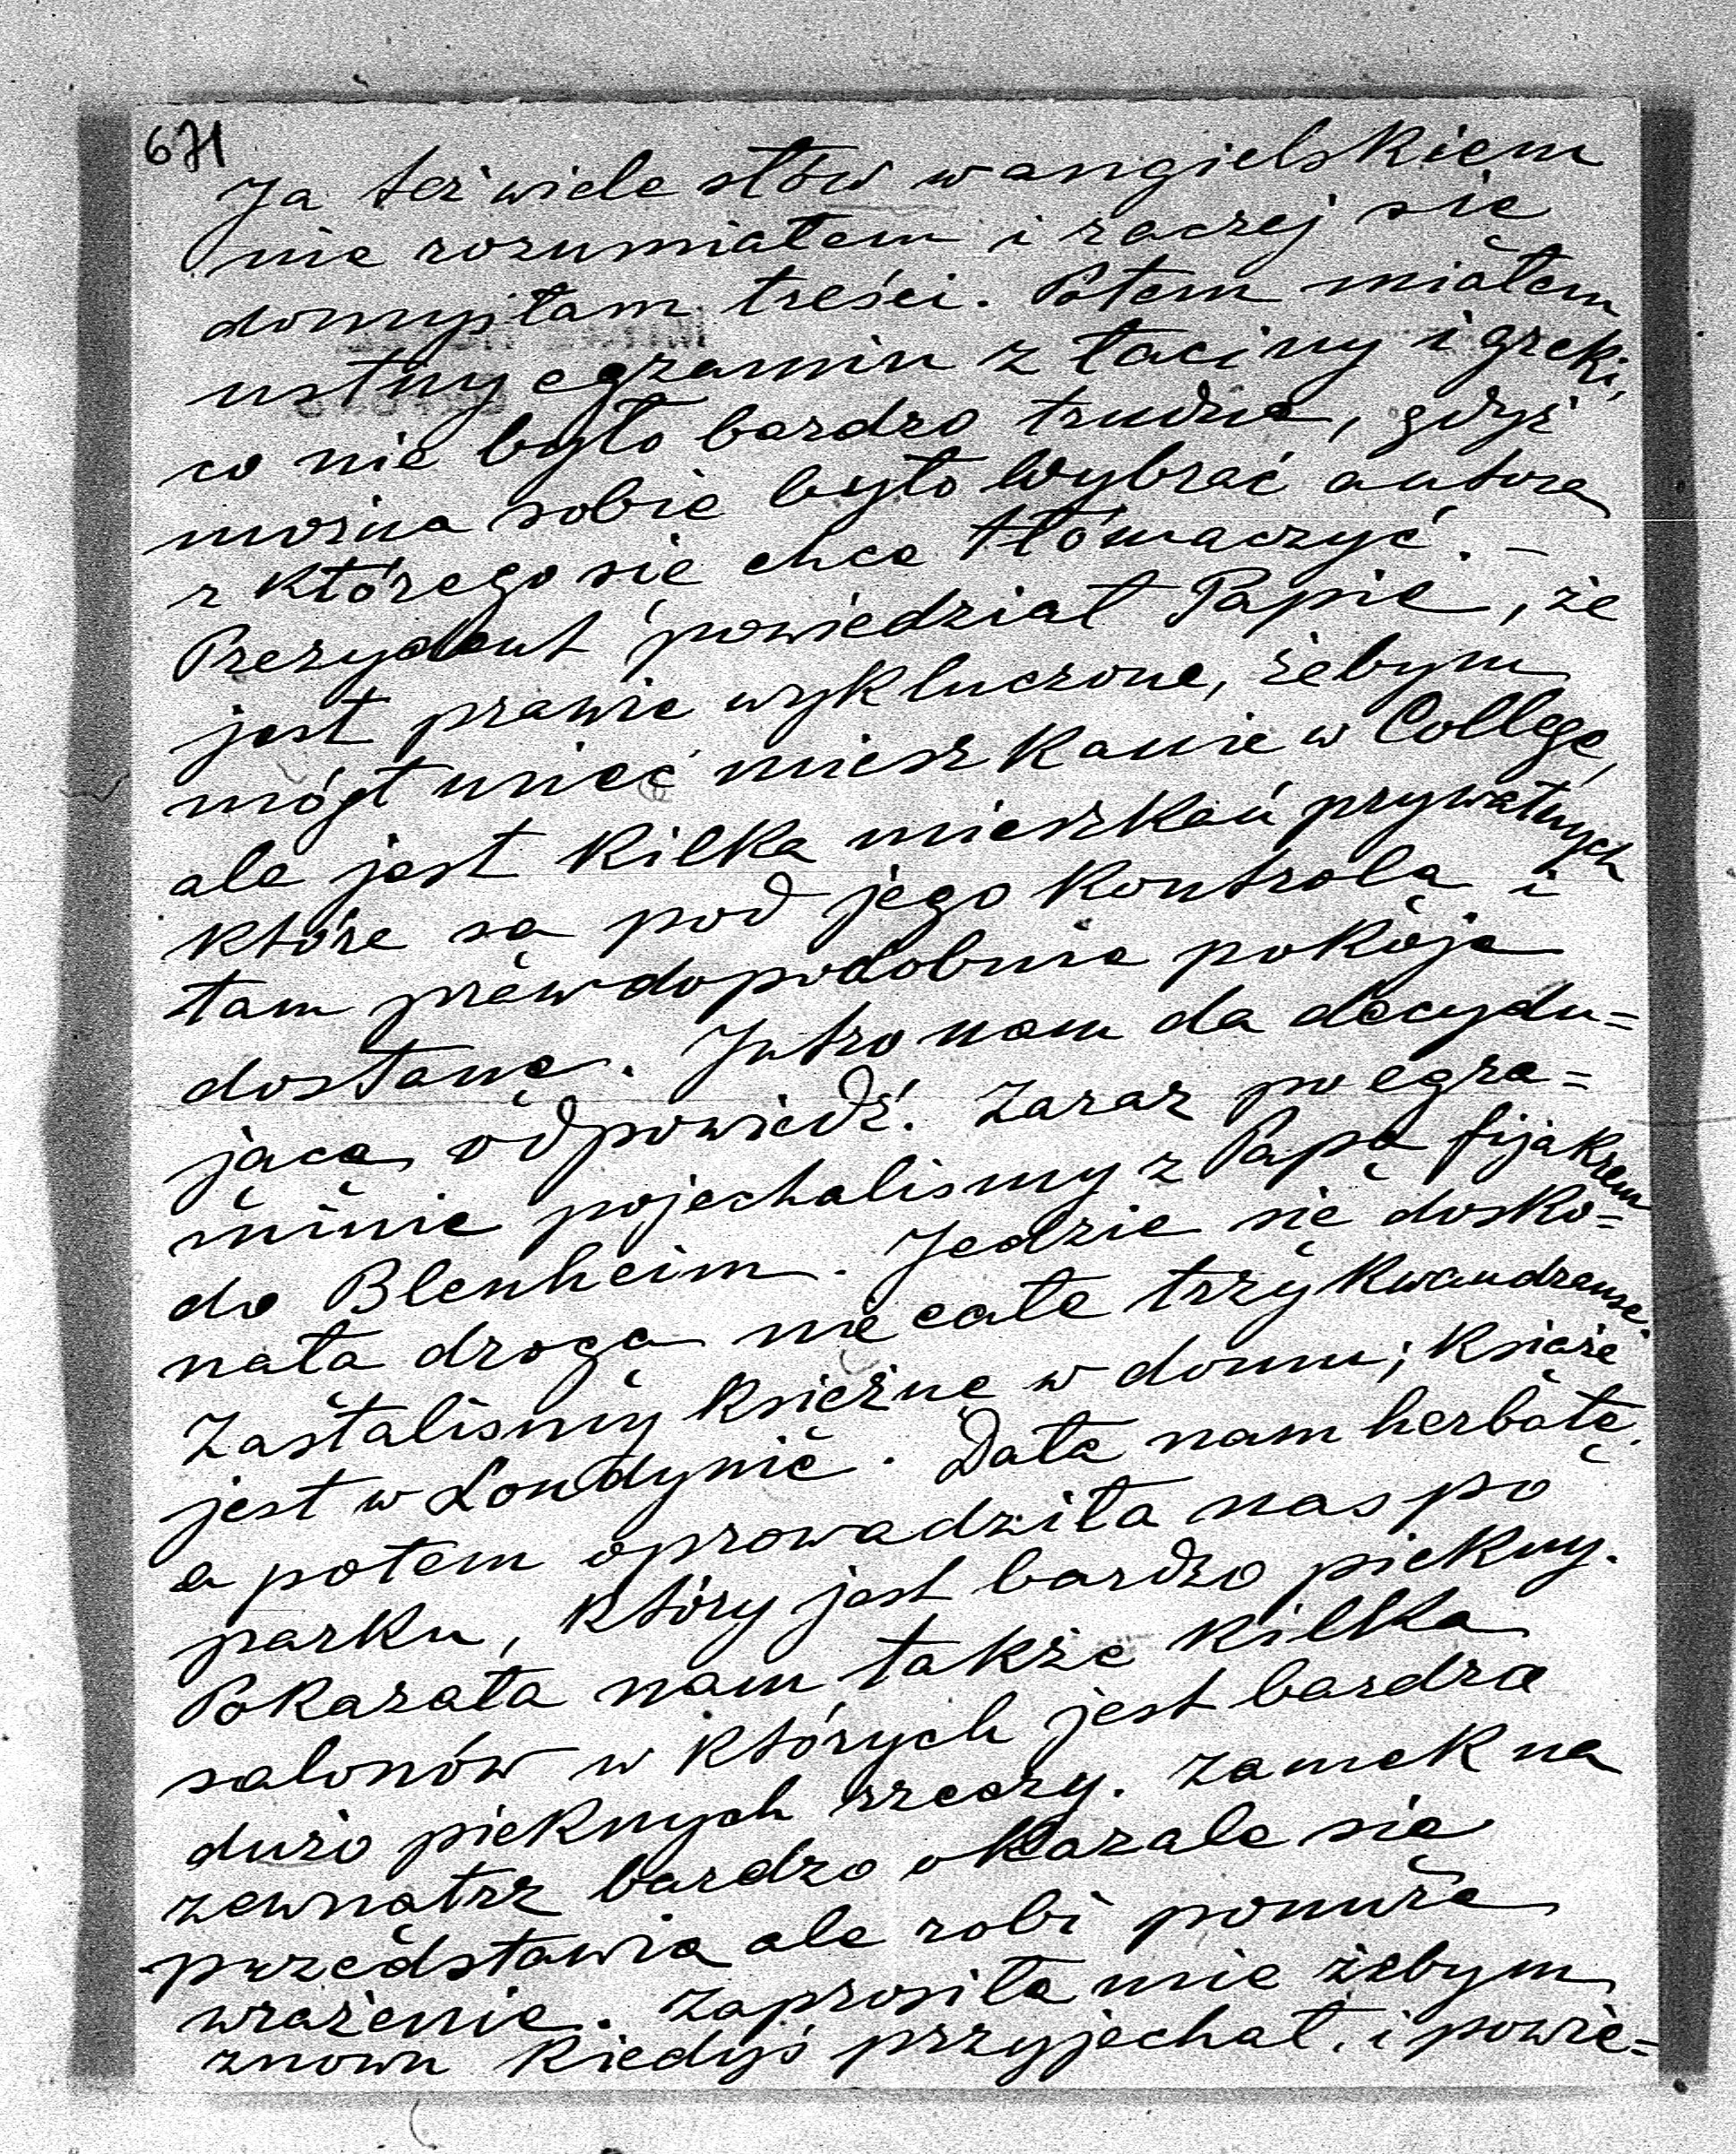 671
Ja też wiele słów w angielskiem
nie rozumiałem i raczej się
domyśłam treści. Potem miałem
ustny egzamin z łaciny i greki,
co nie było bardzo trudne, gdyż
można sobie było wybrać autora
z którego się chce tłómaczyć. –
Prezydent powiedział Papie, że
jest prawie wykluczone, żebym
mógł mieć mieszkanie w College,
ale jest kilka mieszkań prywatnych
które są pod jego kontrolą i
tam prawdopodobnie pokoje
dostanę. Jutro nam da decydu=
jącą odpowiedź. Zaraz po egza=
minie pojechalismy z Papą fijakrem
do Blenheim. Jedzie się dosko=
nałą drogą nie całe trzy kwandranse.
Zastalismy księżnę w domu; książe
jest w Londynie. Dała nam herbatę.
a potem oprowadziła nas po
parku, który jest bardzo piękny.
Pokazała nam także kilka
salonów w których jest bardzo
dużo pięknych rzeczy. Zamek na
zewnątrz bardzo okazale się
przedstawia ale robi ponure
wrażenie. Zaprosiła mię żebym
znowu kiedyś przyjechał. i powie=